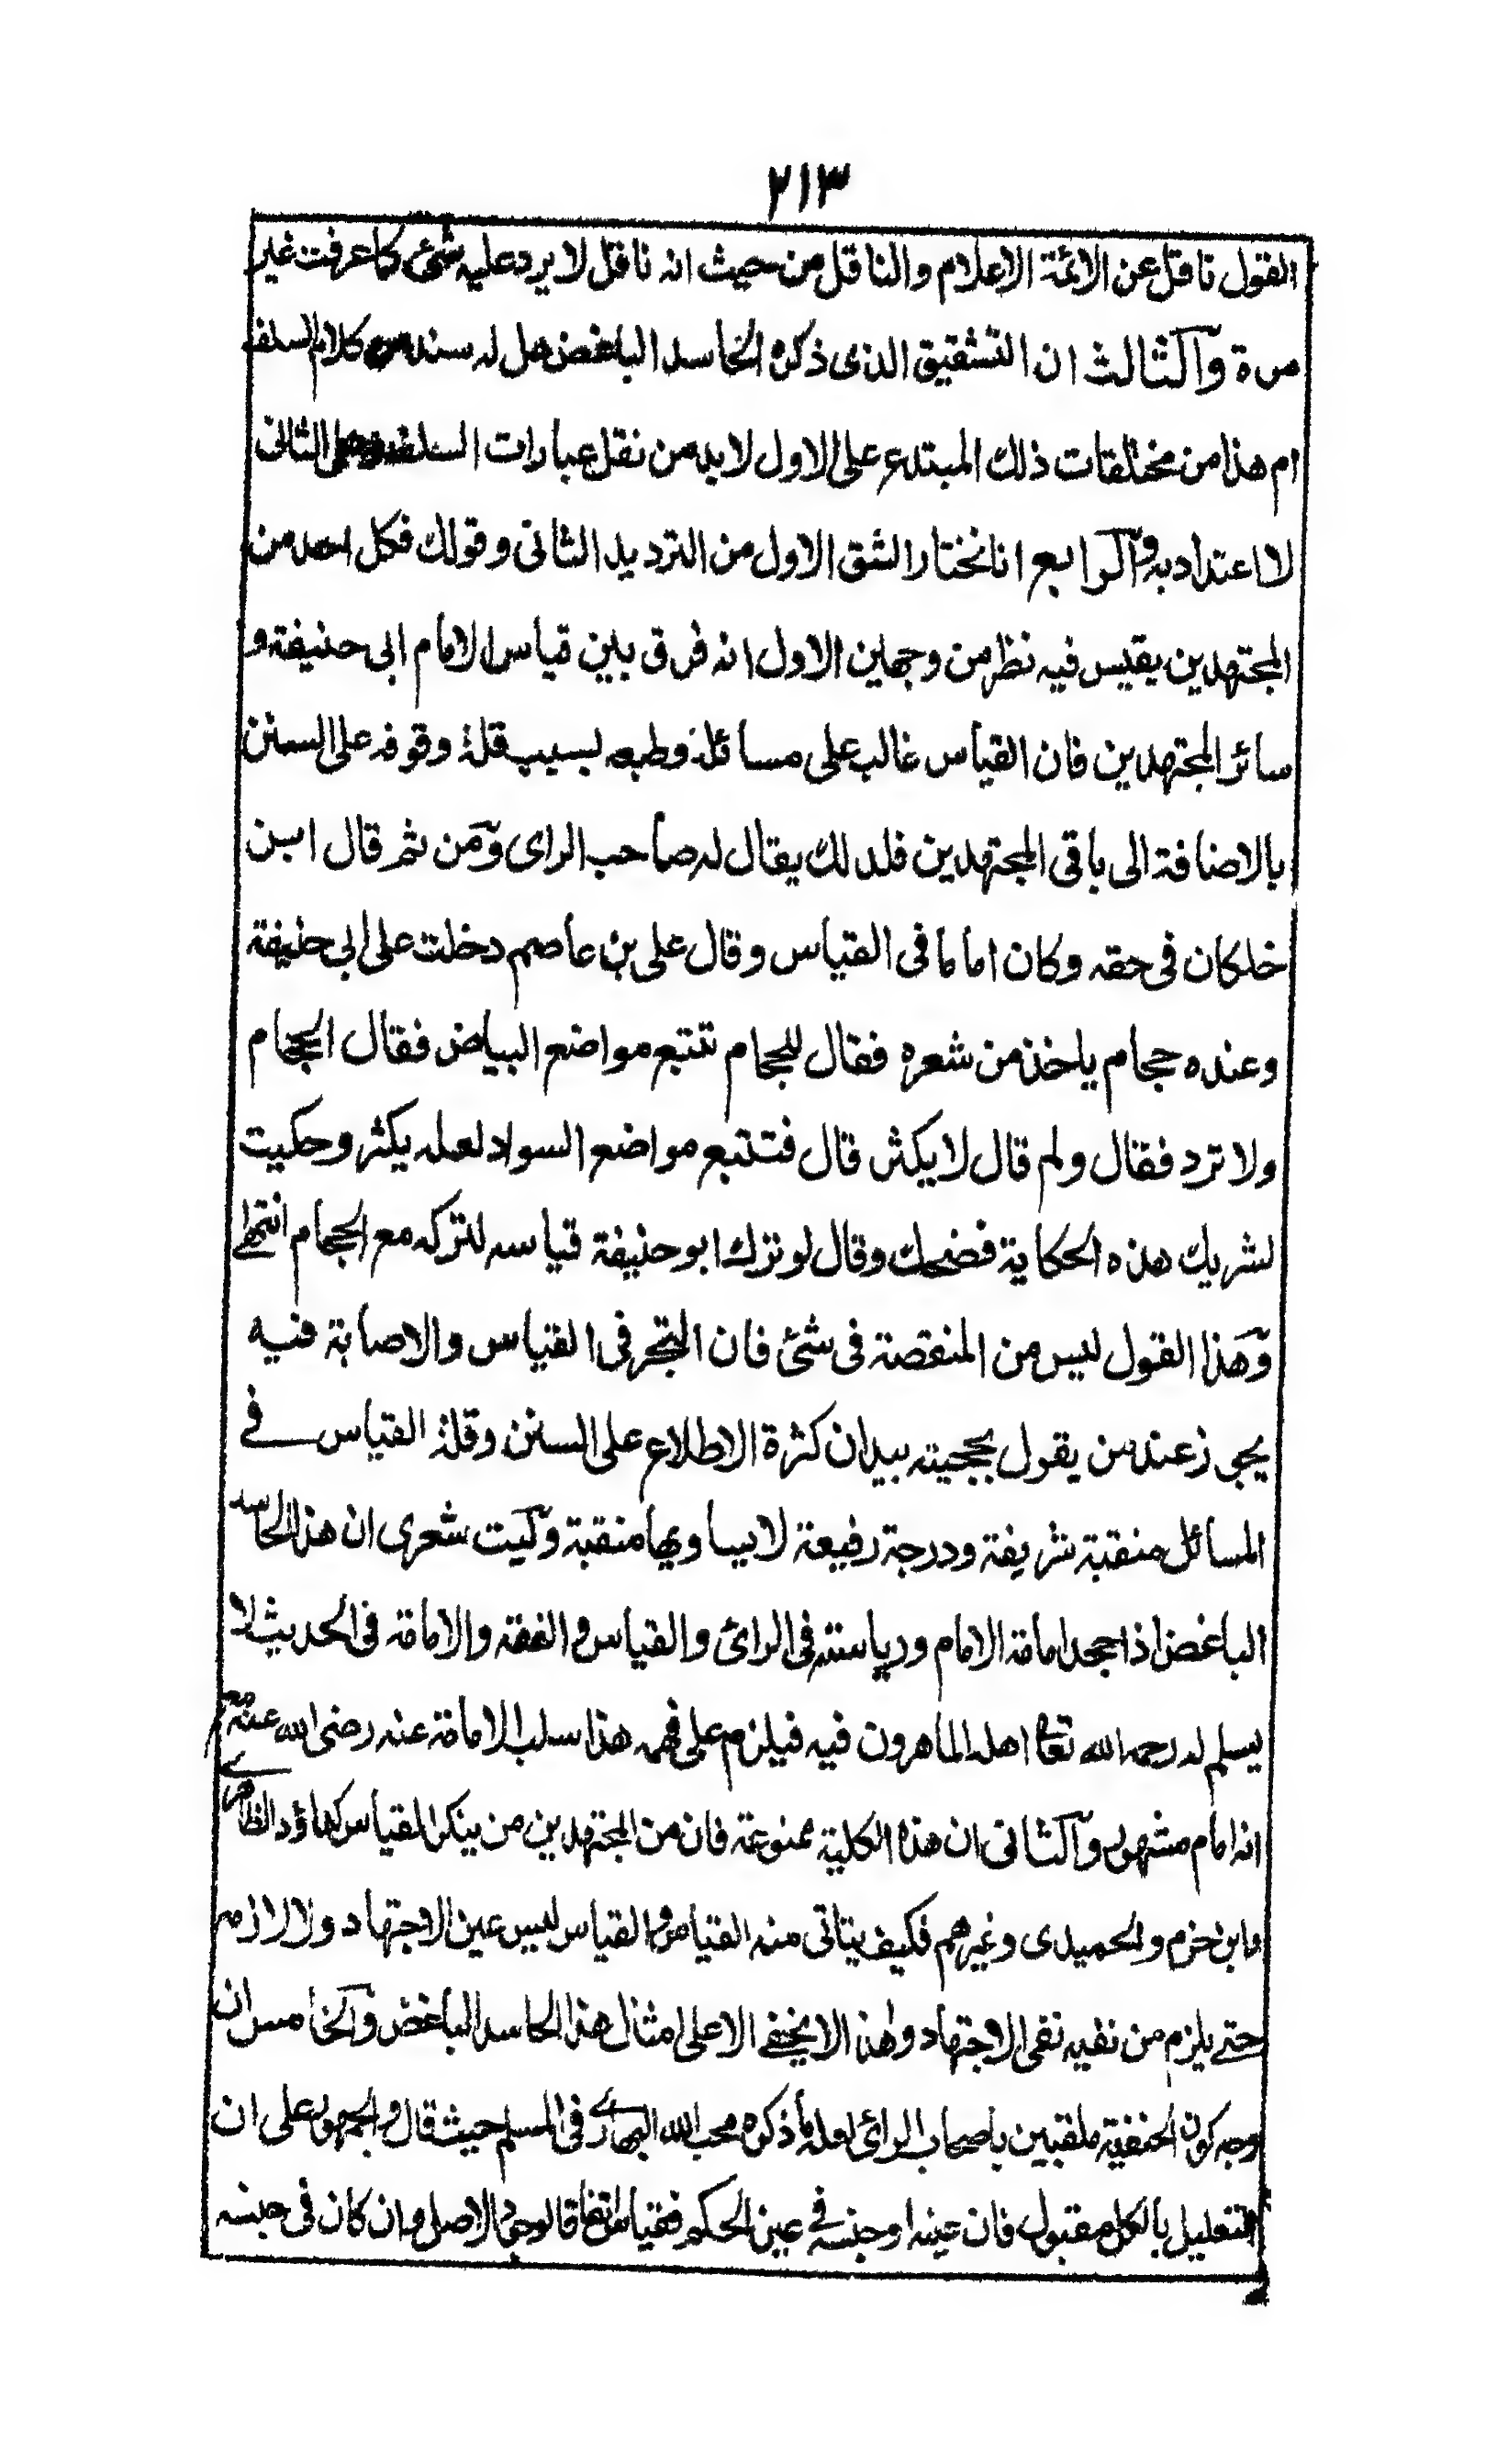 ٢١٣
القول ناقل عن الائمة الاعلام والناقل من حيث انه ناقل لا يرد عليه شئ كما عرفت غير
مرة والثالث ان التشقيق الذى ذكره الحاسد الباغض هل له سند من كلام السلف
ام هذا من مختلقات ذلك المبتدع على الاول لا بد من نقل عبارات السلف وعلى الثانى
لا اعتداد به والرابع انا نختار الشق الاول من الترديد الثانى وقولك فكل احد من
المجتهدين يقيس فيه نظر من وجهين الاول انه فرق بين قياس الامام ابى حنيفة و
سائر المجتهدين فان القياس غالب على مسائله وطبعه بسبب قلة وقوفه على السنن
بالاضافة الى باقى المجتهدين فلذلك يقال له صاحب الراى ومن ثم قال ابن
خلكان فى حقه وكان اماما فى القياس وقال على بن عاصم دخلت على ابى حنيفة
وعنده حجام ياخذ من شعره فقال للحجام تتبع مواضع البياض فقال الحجام
ولا ترد فقال ولم قال لا يكثر قال فتتبع مواضع السواد لعله يكثر وحكيت
لشريك هذه الحكاية فضحك وقال لو ترك ابو حنيفة قياسه لتركه مع الحجام انتهى
وهذا القول ليس من المنقصة فى شئ فان التبحر فى القياس والاصابة فيه
يجى زعند من يقول بحجيته بيدان كثرة الاطلاع على السنن وقلة القياس فى
المسائل منقبة شريفة ودرجة رفيعة لا يساويها منقبة وليت شعرى ان هذا الحاسد
الباغض اذا جحد امامة الامام ورياسته فى الرائ والقياس والفقه والامامة فى الحديث لا
يسلم له رحمه الله تعا اهله الماهرون فيه فيلزم على فهمه هذا سلب الامامة عنه رضى الله عنه مع
انه امام مشهور والثانى ان هذه الكلية ممنوعة فان من المجتهدين من ينكر القياس كداؤد الظاهرى
وابن حزم والحميدى وغيرهم فكيف يتاتى منه القياس والقياس ليس عين الاجتهاد ولا لازمه
حتے يلزم من نفيه نفى الاجتهاد وهذا لا يخفے الا على امثال هذا الحاسد الباغض والخامس ان
وجه كون الحنفية ملقبين باصحاب الرائ لعله ما ذكره محب الله البهارى فى المسلم حيث قال والجمهور على ان
التعليل بالكل مقبول فان عينه او جنسه فى عين الحكم فقياس اتفاقا لوجود الاصل وان كان فى جنسه